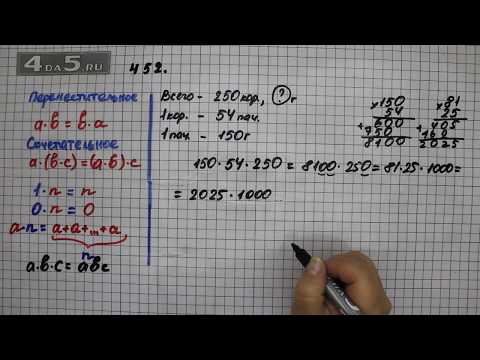 4DA5.RU
452.
Переместительное
a·b = b·a
Сочетательное
a·(b·c)=(a·b)·c
1·n = n
0·n = 0
a·n = a+a+...+a
n
a·b·c = abc
Всего - 250 кор., ? г
1 кор. - 54 пач.
1 пач. - 150 г
150·54·250 = 8100·250 = 81·25·1000 =
= 2025·1000
×150
54
+600
750
8100
×81
25
+405
162
2025